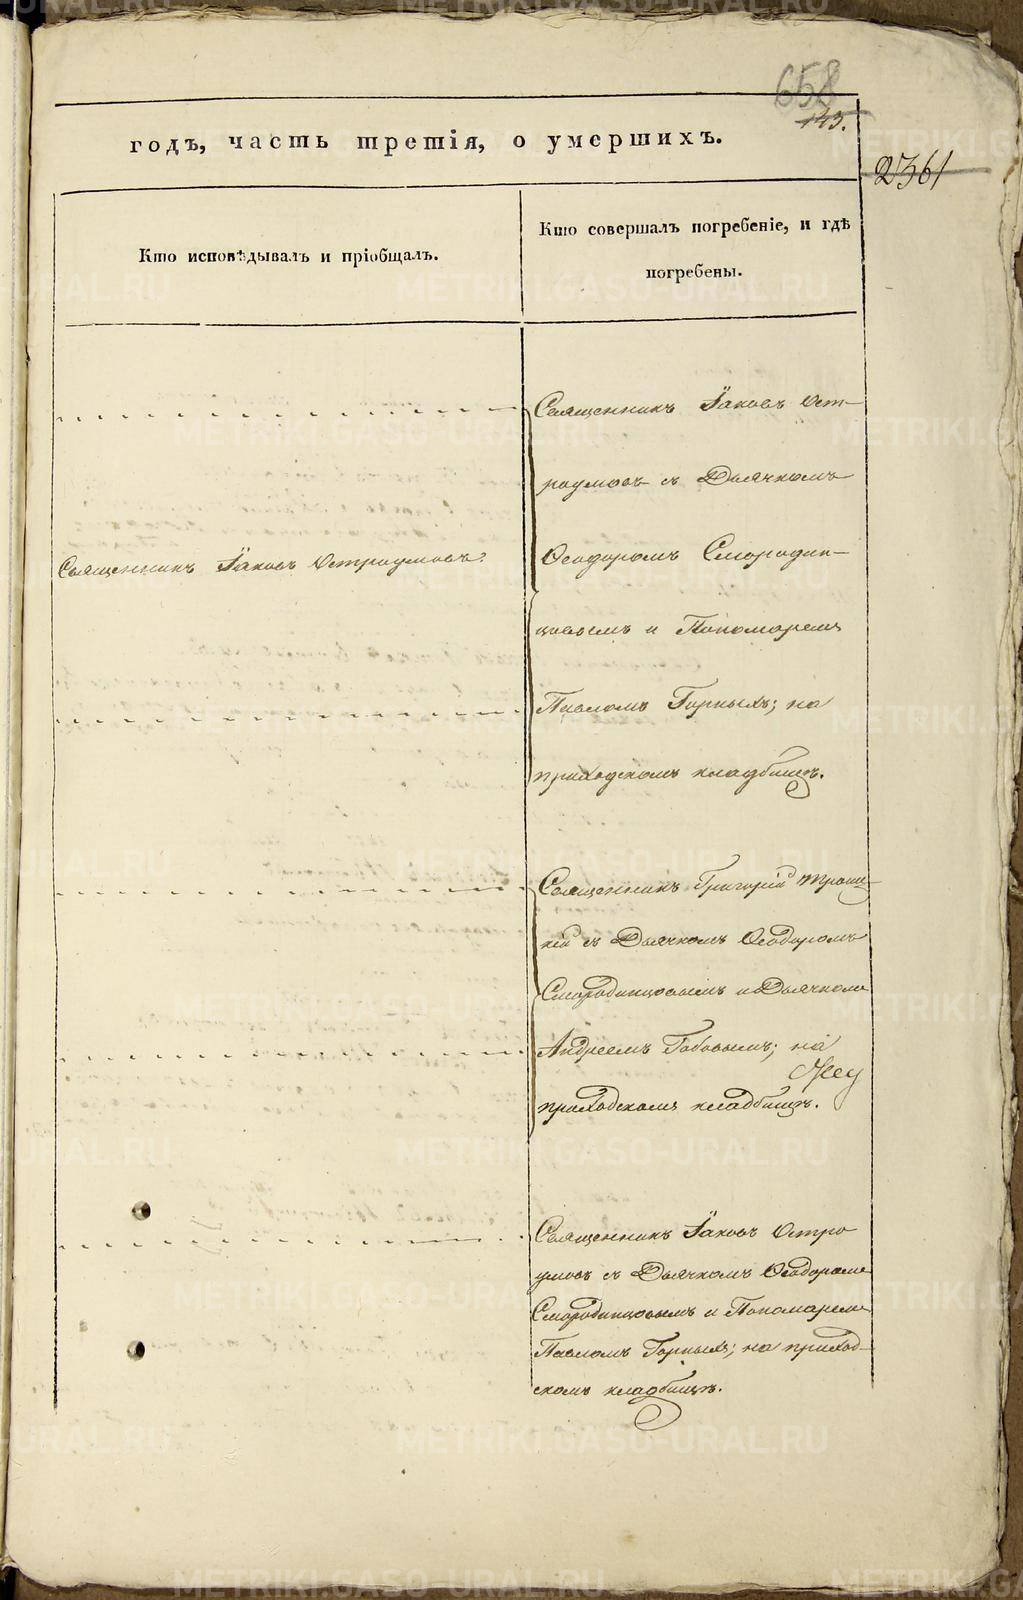 658
143.
2361
годъ, часть третія, о умершихъ.
Кто исповѣдывалъ и пріобщалъ.
Кто совершалъ погребеніе, и гдѣ
погребены.
Священникъ Іаковъ Ост-
роумовъ съ Дьячкомъ
Священникъ Іаковъ Остроумовъ.
Ѳеодоромъ Смородин-
цовымъ и Пономаремъ
Павломъ Горныхъ; на
приходскомъ кладбищѣ.
Священникъ Григорій Троиц-
кій съ Дьячкомъ Ѳеодоромъ
Смородинцовымъ и Дьячкомъ
Андреемъ Бабовымъ; на
приходскомъ кладбищѣ.
Священникъ Іаковъ Остро
умовъ съ Дьячкомъ Ѳеодоромъ
Смородинцовымъ и Пономаремъ
Павломъ Горныхъ; на приход-
скомъ кладбищѣ.
METRIKI.GASO-URAL.RU